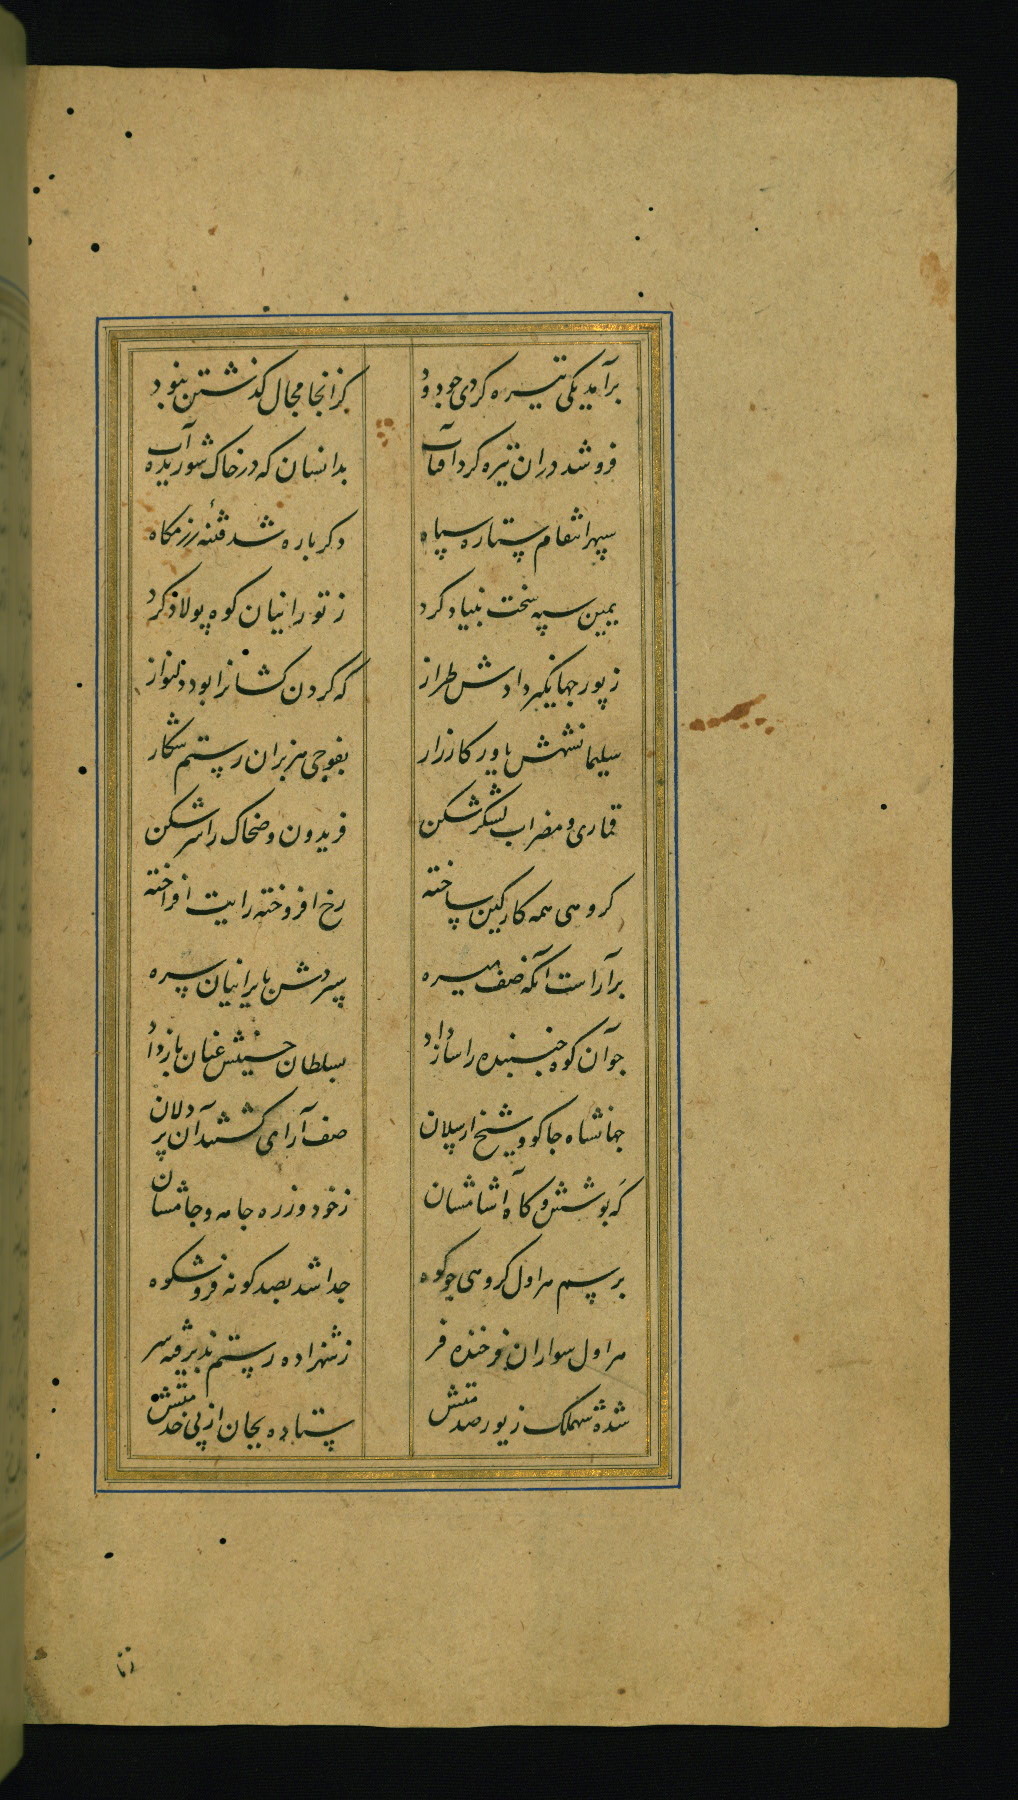 برآمد یکی تیره کردی چو دود کزانجا مجال کذشتن نبود
فرو شد دران تیره کرد آفتاب بدانسان که در خاک شوریده آب
سپهر انتقام ستاره سپاه دکرباره شد فتنهٔ رزمکاه
یمین سپه سخت بنیاد کرد ز تورانیان کوه پولاد کرد
ز پور جهانکیر دادش طراز که کردن کشانرا بود دلنواز
سلیمانشهش یاور کارزار بفوجی هزبران رستم شکار
قماری و مضراب لشکر شکن فریدون و ضحاک را سرشکن
کروهی همه کار کین ساخته رخ افروخته رایت افراخته
برآراست آنکه صف میسره سپردش بایرانیان سره
چو آن کوه جنبنده را ساز داد بسلطان حسینش عنان باز داد
جهانشاه جاکو و شیخ ارسلان صف آرای کشتند آن پر دلان
که پوشش و کاه آشامشان ز خود و زره جامه و جامشان
برسم هراول کروهی چو کوه جدا شد بصد کونه فر و شکوه
هراول سواران فرخنده فر ز شهزاده رستم پذیرفته سر
شده شه‌ملک زیور صد متش ستاده بجان از پی خدمتش